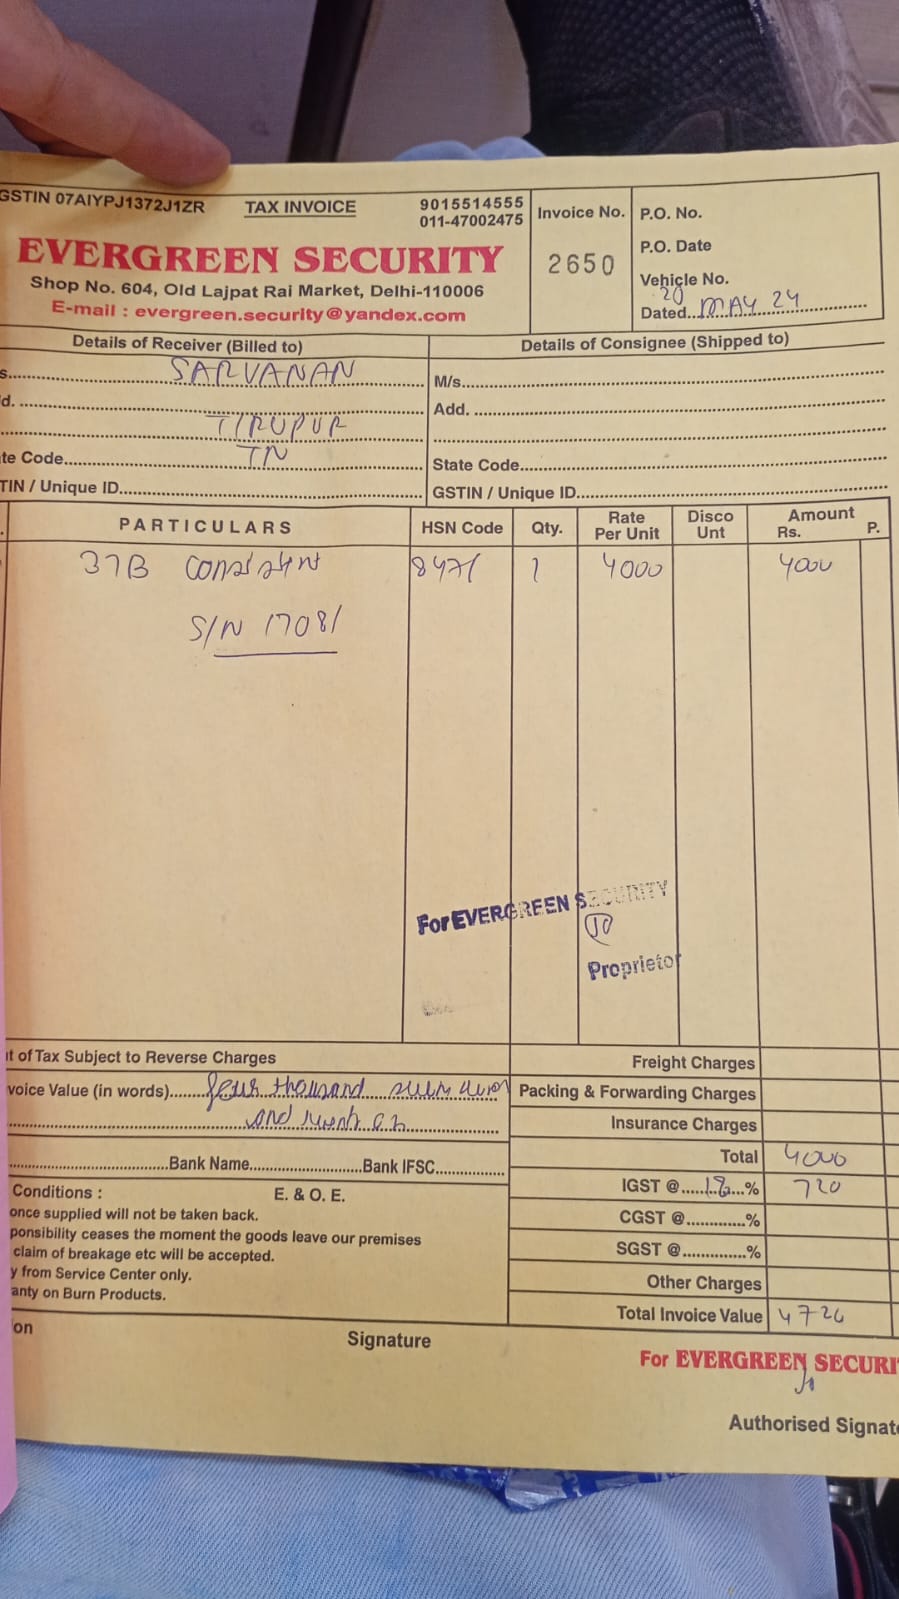 GSTIN 07AIYPJ1372J1ZR TAX INVOICE 9015514555
011-47002475
EVERGREEN SECURITY
Shop No. 604, Old Lajpat Rai Market, Delhi-110006
E-mail : evergreen.security@yandex.com
Invoice No.
2650
P.O. No.
P.O. Date
Vehicle No.
Dated..20 MAY 24
Details of Receiver (Billed to) Details of Consignee (Shipped to)
SARVANAN
M/s.
Add.
TIRUPUR
te Code TN
State Code
TIN / Unique ID GSTIN / Unique ID
PARTICULARS HSN Code Qty. Rate Per Unit Disco Unt Amount Rs. P.
3TB Consistent 8471 1 4000 4000
S/N 17081
For EVERGREEN SECURITY
Proprietor
t of Tax Subject to Reverse Charges Freight Charges
voice Value (in words) four thousand Packing & Forwarding Charges
and Insurance Charges
Total 4000
Bank Name Bank IFSC
IGST @ 18 % 720
Conditions : E. & O. E.
CGST @ %
once supplied will not be taken back.
ponsibility ceases the moment the goods leave our premises
SGST @ %
claim of breakage etc will be accepted.
y from Service Center only.
Other Charges
anty on Burn Products.
Total Invoice Value 4720
on Signature
For EVERGREEN SECURI
Authorised Signat